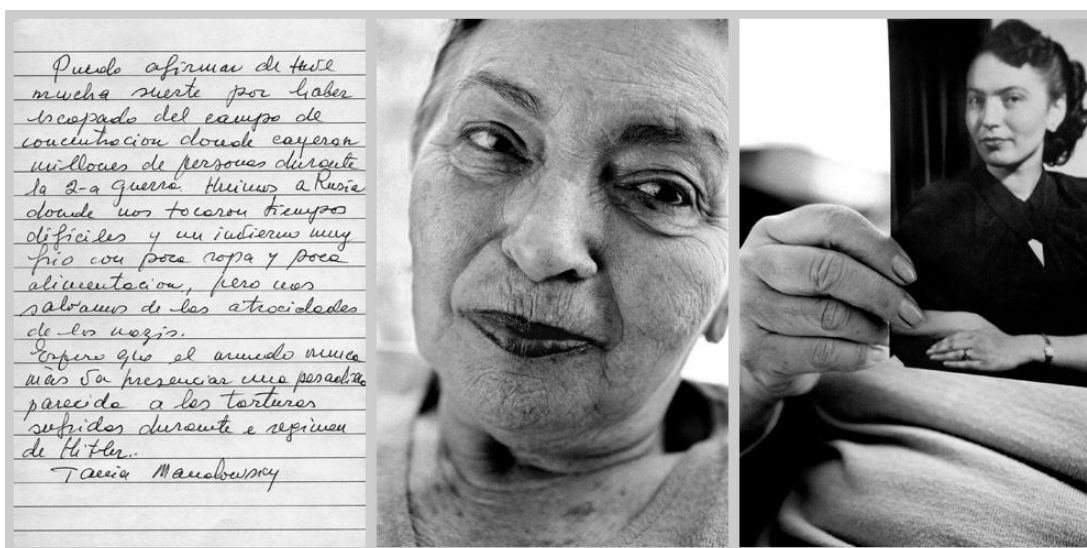 Puedo afirmar de tuve
mucha suerte por haber
escapado del campo de
concentracion donde cayeron
millones de personas durante
la 2-a guerra. Huimos a Rusia
donde nos tocaron tiempos
dificiles y un invierno muy
frio con poca ropa y poca
alimentacion, pero nos
salvamos de las atrocidades
de los nazis.
Espero que el mundo nunca
más va presenciar una pesadilla
parecida a las torturas
sufridas durante e regimen
de Hitler.
Tania